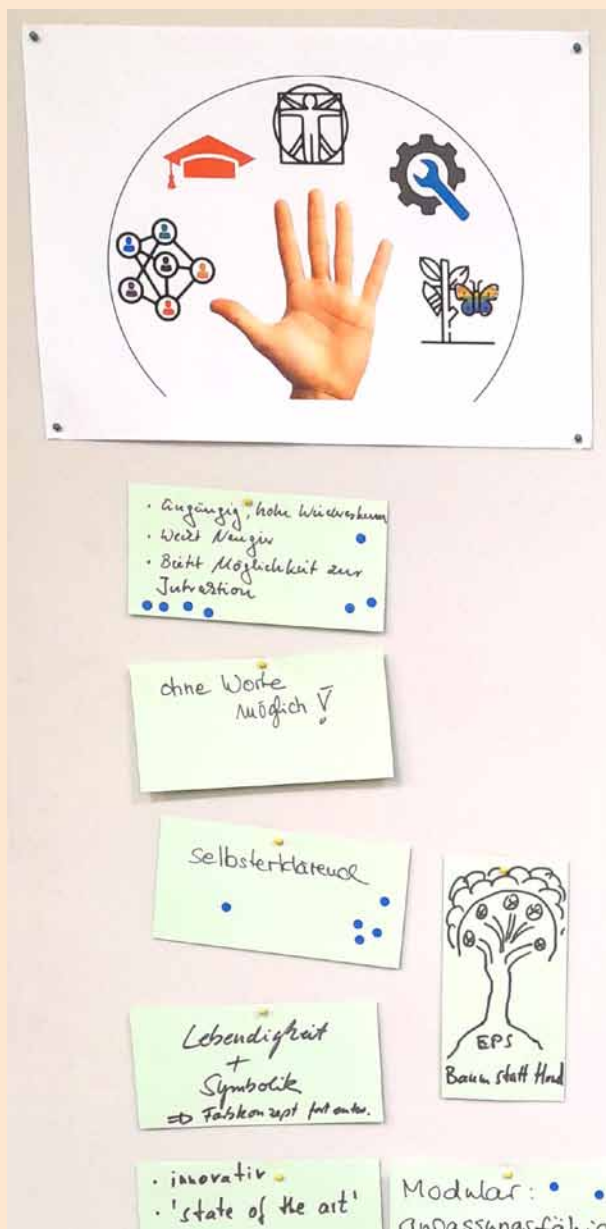 · Eingängig, hohe
· Weckt Neugier
· Bietet Möglichkeit zur
Interaktion
ohne Worte
möglich !
selbsterklärend
Lebendigkeit
+
Symbolik
⇒ Farbkonzept
EPS
Baum statt Hand
· innovativ
· 'state of the art'
Modular:
anpassungsfähig